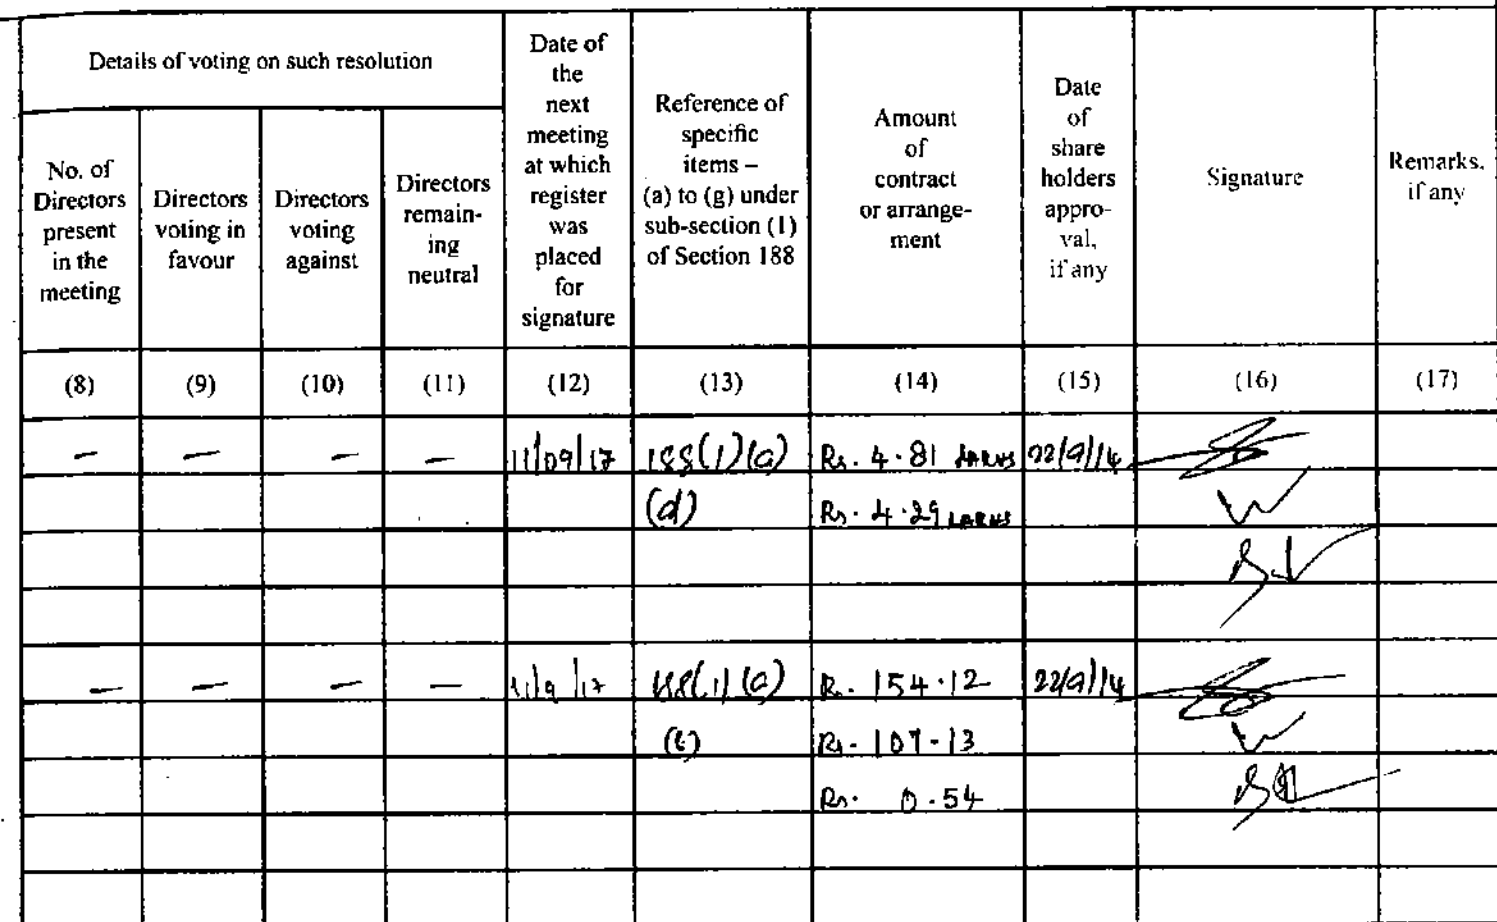 Details of voting on such resolution
Date of
the
next
meeting
at which
register
was
placed
for
signature
Reference of
specific
items –
(a) to (g) under
sub-section (1)
of Section 188
Amount
of
contract
or arrange-
ment
Date
of
share
holders
appro-
val,
if any
Signature
Remarks,
if any
No. of
Directors
present
in the
meeting
Directors
voting in
favour
Directors
voting
against
Directors
remain-
ing
neutral
(8) (9) (10) (11) (12) (13) (14) (15) (16) (17)
– – – – 11/09/17 188(1)(a) Rs. 4.81 LAKHS 22/9/14
(d) Rs. 4.29 LAKHS
– – – – 11/9/17 188(1)(a) Rs. 154.12 22/9/14
Rs. 107.13
Rs. 0.54